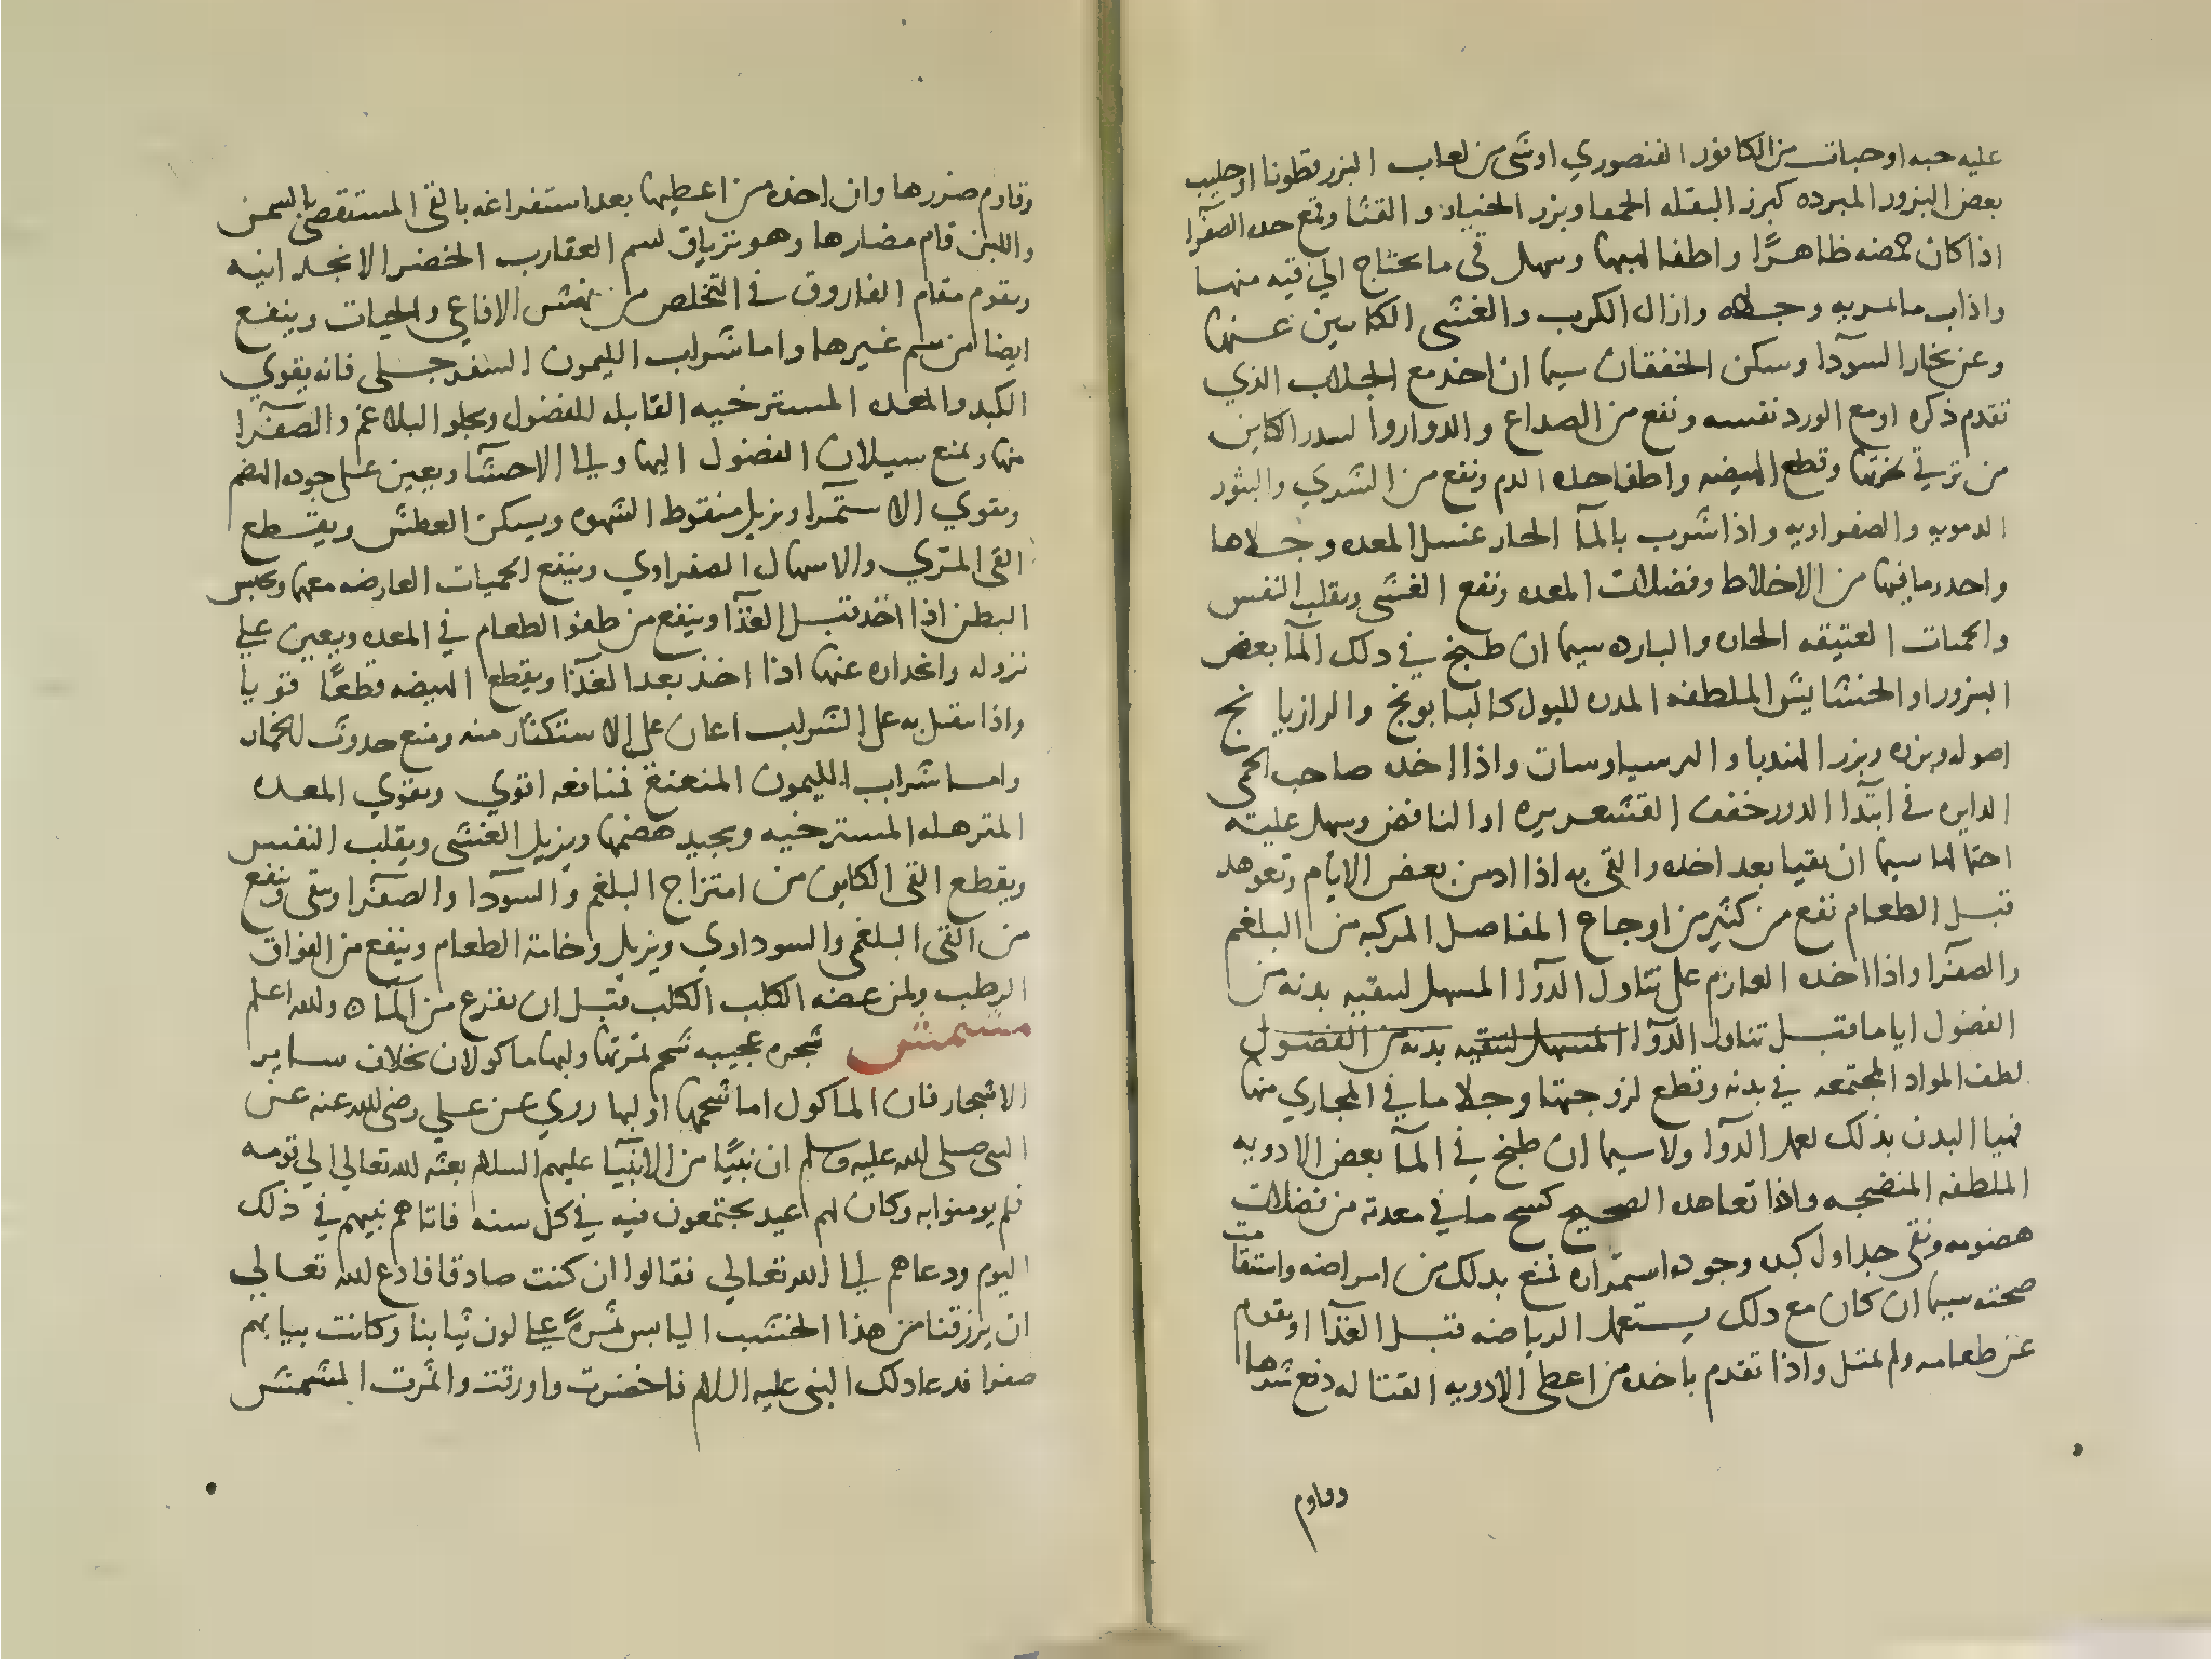 عليه حبه او حبات من الكافور القنصوري او شى من لعاب البزر قطونا او حليب
بعض البزور المبرده كبزر البقله الحمقا وبزر الخيار و القثا وقمع حده الصفرآ
اذا كان حمضه ظاهرًا واطفا لهيبها وسهل قى ما يحتاج الي قيه منها
واذاب ما لم يربه وجلاه وازال الكرب والغشى الكاينين عنها
وعن بخار السوآدا وسكن الخفقان سيما ان اخذ مع الجلاب الذي
تقدم ذكره او مع الورد نفسه ونفع من الصداع والدوار والسدر الكاين
من ترقي بخرتها وقطع الهيضه واطفا حده الدم ونفع من الشري والبثور
الدمويه والصفراويه واذا شرب بالمآ الحار غسل المعده وجلاها
واحدر ما فيها من الاخلاط وفضلات المعده ونفع الغشى وتقلب النفس
والحميات العتيقه الحاره والبارده سيما ان طبخ في ذلك المآ بعض
البزور او الحشايش الملطفه المدره للبول كالبابونج والرازيانج
اصوله وبزره وبزر الهندبا و البرسياوسان واذا اخذه صاحب الحمى
الدايره في ابتدآ الدور خفف القشعريره او النافض وسهل عليه
احتمالها سيما ان تقيا بعد اخذه والقى به اذا ادمن بعض الايام وتعوهد
قبل الطعام نفع من كثير من اوجاع المفاصل المركبه من البلغم
والصفرآ واذا اخذه العازم على تناول الدوآ المسهل لتنقيه بدنه من
الفضول اياما قبل تناول الدوآ المسهل لتنقيه بدنه من الفضول
لطف المواد المجتمعه في بدنه وقطع لزوجتها وجلا ما في المجاري منها
فهيا البدن بذلك لعمل الدوآ ولا سيما ان طبخ في المآ بعض الادويه
الملطفه المنضجه واذا تعاهده الصحيح كسح ما في معدته من فضلات
هضومه ونقى جداول كبده وجود استمراره فمنع بذلك من امراضه واستقامت
صحته سيما ان كان مع ذلك يستعمل الرياضه قبل الغذآ او يقدم
عن طعامه ولم يمتل واذا تقدم باخذه من اعطى الادويه القتاله دفع شرها
وقاوم
وقاوم ضررها وان اخذه من اعطيها بعد استفراغه بالقى المستقصى بالسمن
واللبن قام مضارها وهو ترياق لسم العقارب الخضر الانجدانيه
ويقوم مقام الفاروق في التخلص من نهش الافاعي والحيات وينفع
ايضا من سم غيرها واما شراب الليمون السفرجلى فانه يقوي
الكبد والمعده المسترخيه القابله للفضول ويجلو البلاغم والصفرآ
منها ويمنع سيلان الفضول اليها والي الاحشا ويعين على جوده الهضم
ويقوي الاستمرآ ويزيل سقوط الشهوه ويسكن العطش ويقطع
القى المري والاسهال الصفراوي وينفع الحميات العارضه معها ويحبس
البطن اذا اخذ قبل الغذآ وينفع من طفو الطعام في المعده ويعين علي
نزوله وانحداره عنها اذا اخذ بعد الغذآ ويقطع الهيضه قطعًا قويا
واذا تنقل به على الشراب اعان علي الاستكثار منه ومنع حدوث الخمار
واما شراب الليمون المنعنع فمنافعه اقوي ويقوي المعده
المترهله المسترخيه ويجيد هضمها ويزيل الغشى وتقلب النفس
ويقطع القى الكاين من امتزاج البلغم والسوآدا والصفرآ وينفع
من القى البلغمى والسوداوي ويزيل وخامة الطعام وينفع من الفواق
الرطب ولمن عضه الكلب الكلب قبل ان يفزع من المآ ٥ والله اعلم
مشمش شجره عجيبه شحم ثمرتها ولبها ماكولان بخلاف ساير
الاشجار فان الماكول اما شحمها او لبها روي عن علي رضى الله عنه عن
النبى صلى الله عليه وسلم ان نبيًا من الانبيآ عليهم السلام بعثه الله تعالي الي قومه
فلم يومنوا به وكان لهم عيد يجتمعون فيه في كل سنه فاتاهم نبيهم في ذلك
اليوم ودعاهم الي الله تعالي فقالوا ان كنت صادقا فادع الله تعالي
ان يرزقنا من هذا الخشب اليابس ثمرةً علي لون ثيابنا وكانت ثيابهم
صفرا فدعا ذلك النبى عليه السلام فاخضرت واورقت واثمرت المشمش